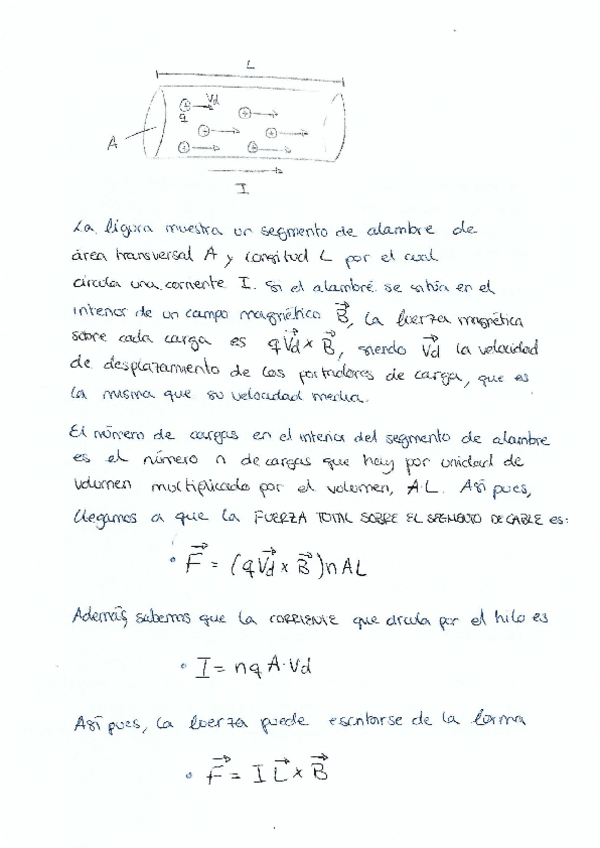 L
Vd
q
A
I
La figura muestra un segmento de alambre de
área transversal A y longitud L por el cual
circula una corriente I. Si el alambre se sitúa en el
interior de un campo magnético B⃗, la fuerza magnética
sobre cada carga es qV⃗d × B⃗, siendo V⃗d la velocidad
de desplazamiento de los portadores de carga, que es
la misma que su velocidad media.
El número de cargas en el interior del segmento de alambre
es el número n de cargas que hay por unidad de
volumen multiplicado por el volumen, A·L. Así pues,
llegamos a que la FUERZA TOTAL SOBRE EL SEGMENTO DE CABLE es:
• F⃗ = (qV⃗d × B⃗)nAL
Además, sabemos que la CORRIENTE que circula por el hilo es
• I = nqA·Vd
Así pues, la fuerza puede escribirse de la forma
• F⃗ = I L⃗ × B⃗